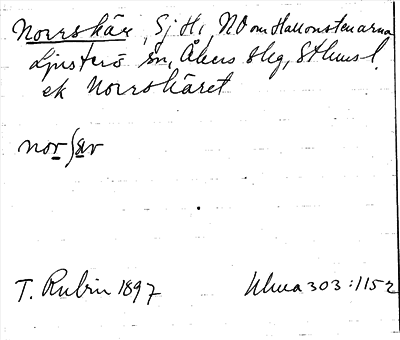 Norrskär, Sj H, NO om Hallonstenarna
Ljusterö sn, Åkers skg, Sthms l.
ek Norrskäret
T. Rubin 1897 Ulma 303:115 2